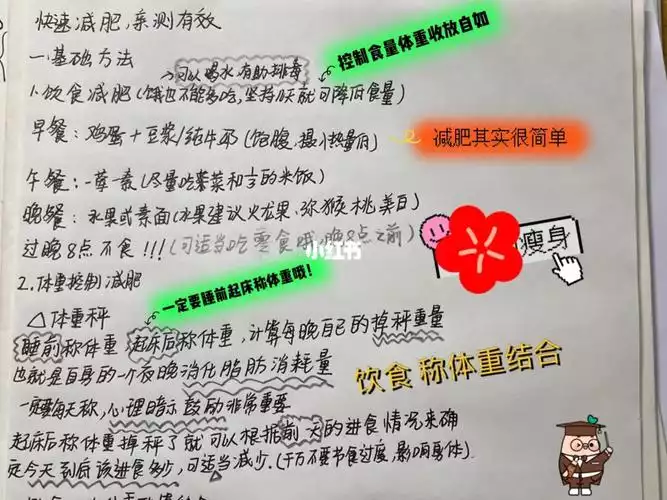 快速减肥,亲测有效
控制食量体重收放自如
一.基础方法
可以喝水有助排毒
1.饮食减肥(饿也不能多吃,坚持1天就可降低食量)
早餐:鸡蛋+豆浆/纯牛奶(饱腹,摄小热量高)
减肥其实很简单
午餐:一荤一素(尽量吃荤菜和一半的米饭)
晚餐:水果或素面(水果建议火龙果、弥猴桃美白)
过晚8点不食!!!(可适当吃零食哦,晚8点之前)
小红书
瘦身
2.体重控制减肥
一定要睡前起床称体重哦!
△体重秤
睡前称体重,起床后称体重,计算每晚自己的掉秤重量
也就是自身的一个夜晚消化脂肪消耗量
饮食 称体重结合
一定要每天称,心理暗示鼓励非常重要
起床后称体重掉秤了就可以根据前一天的进食情况来确
定今天到后该进食多少,可适当减少.(千万不要节食过度,影响身体)